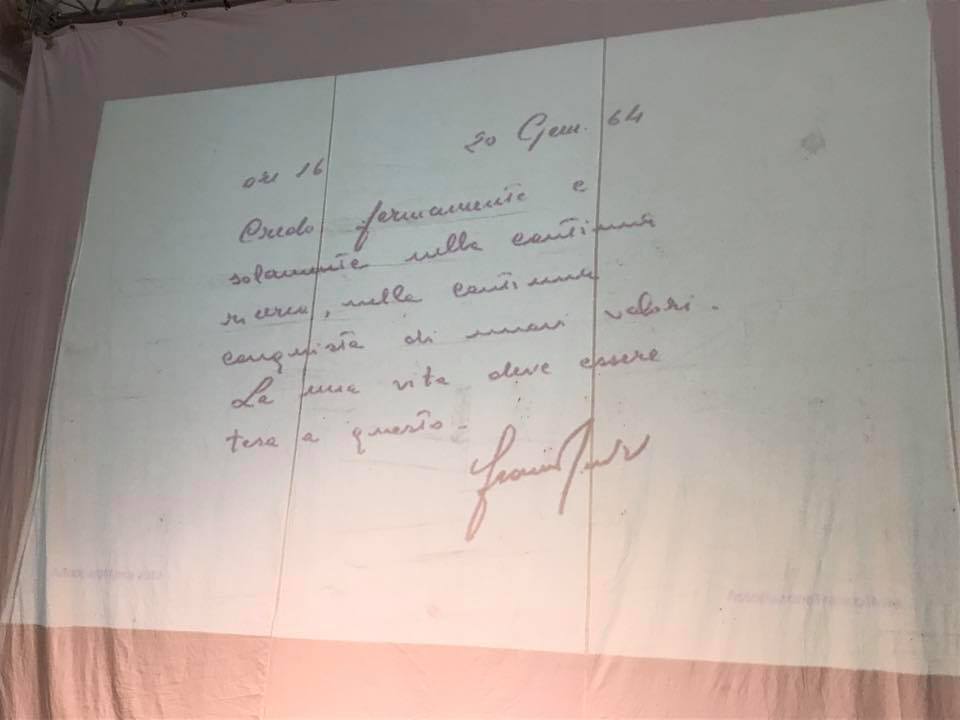 20 Gen. 64
ore 16
Credo fermamente e
solamente nella continua
ricerca, nella continua
conquista di nuovi valori.
La mia vita deve essere
tesa a questo.